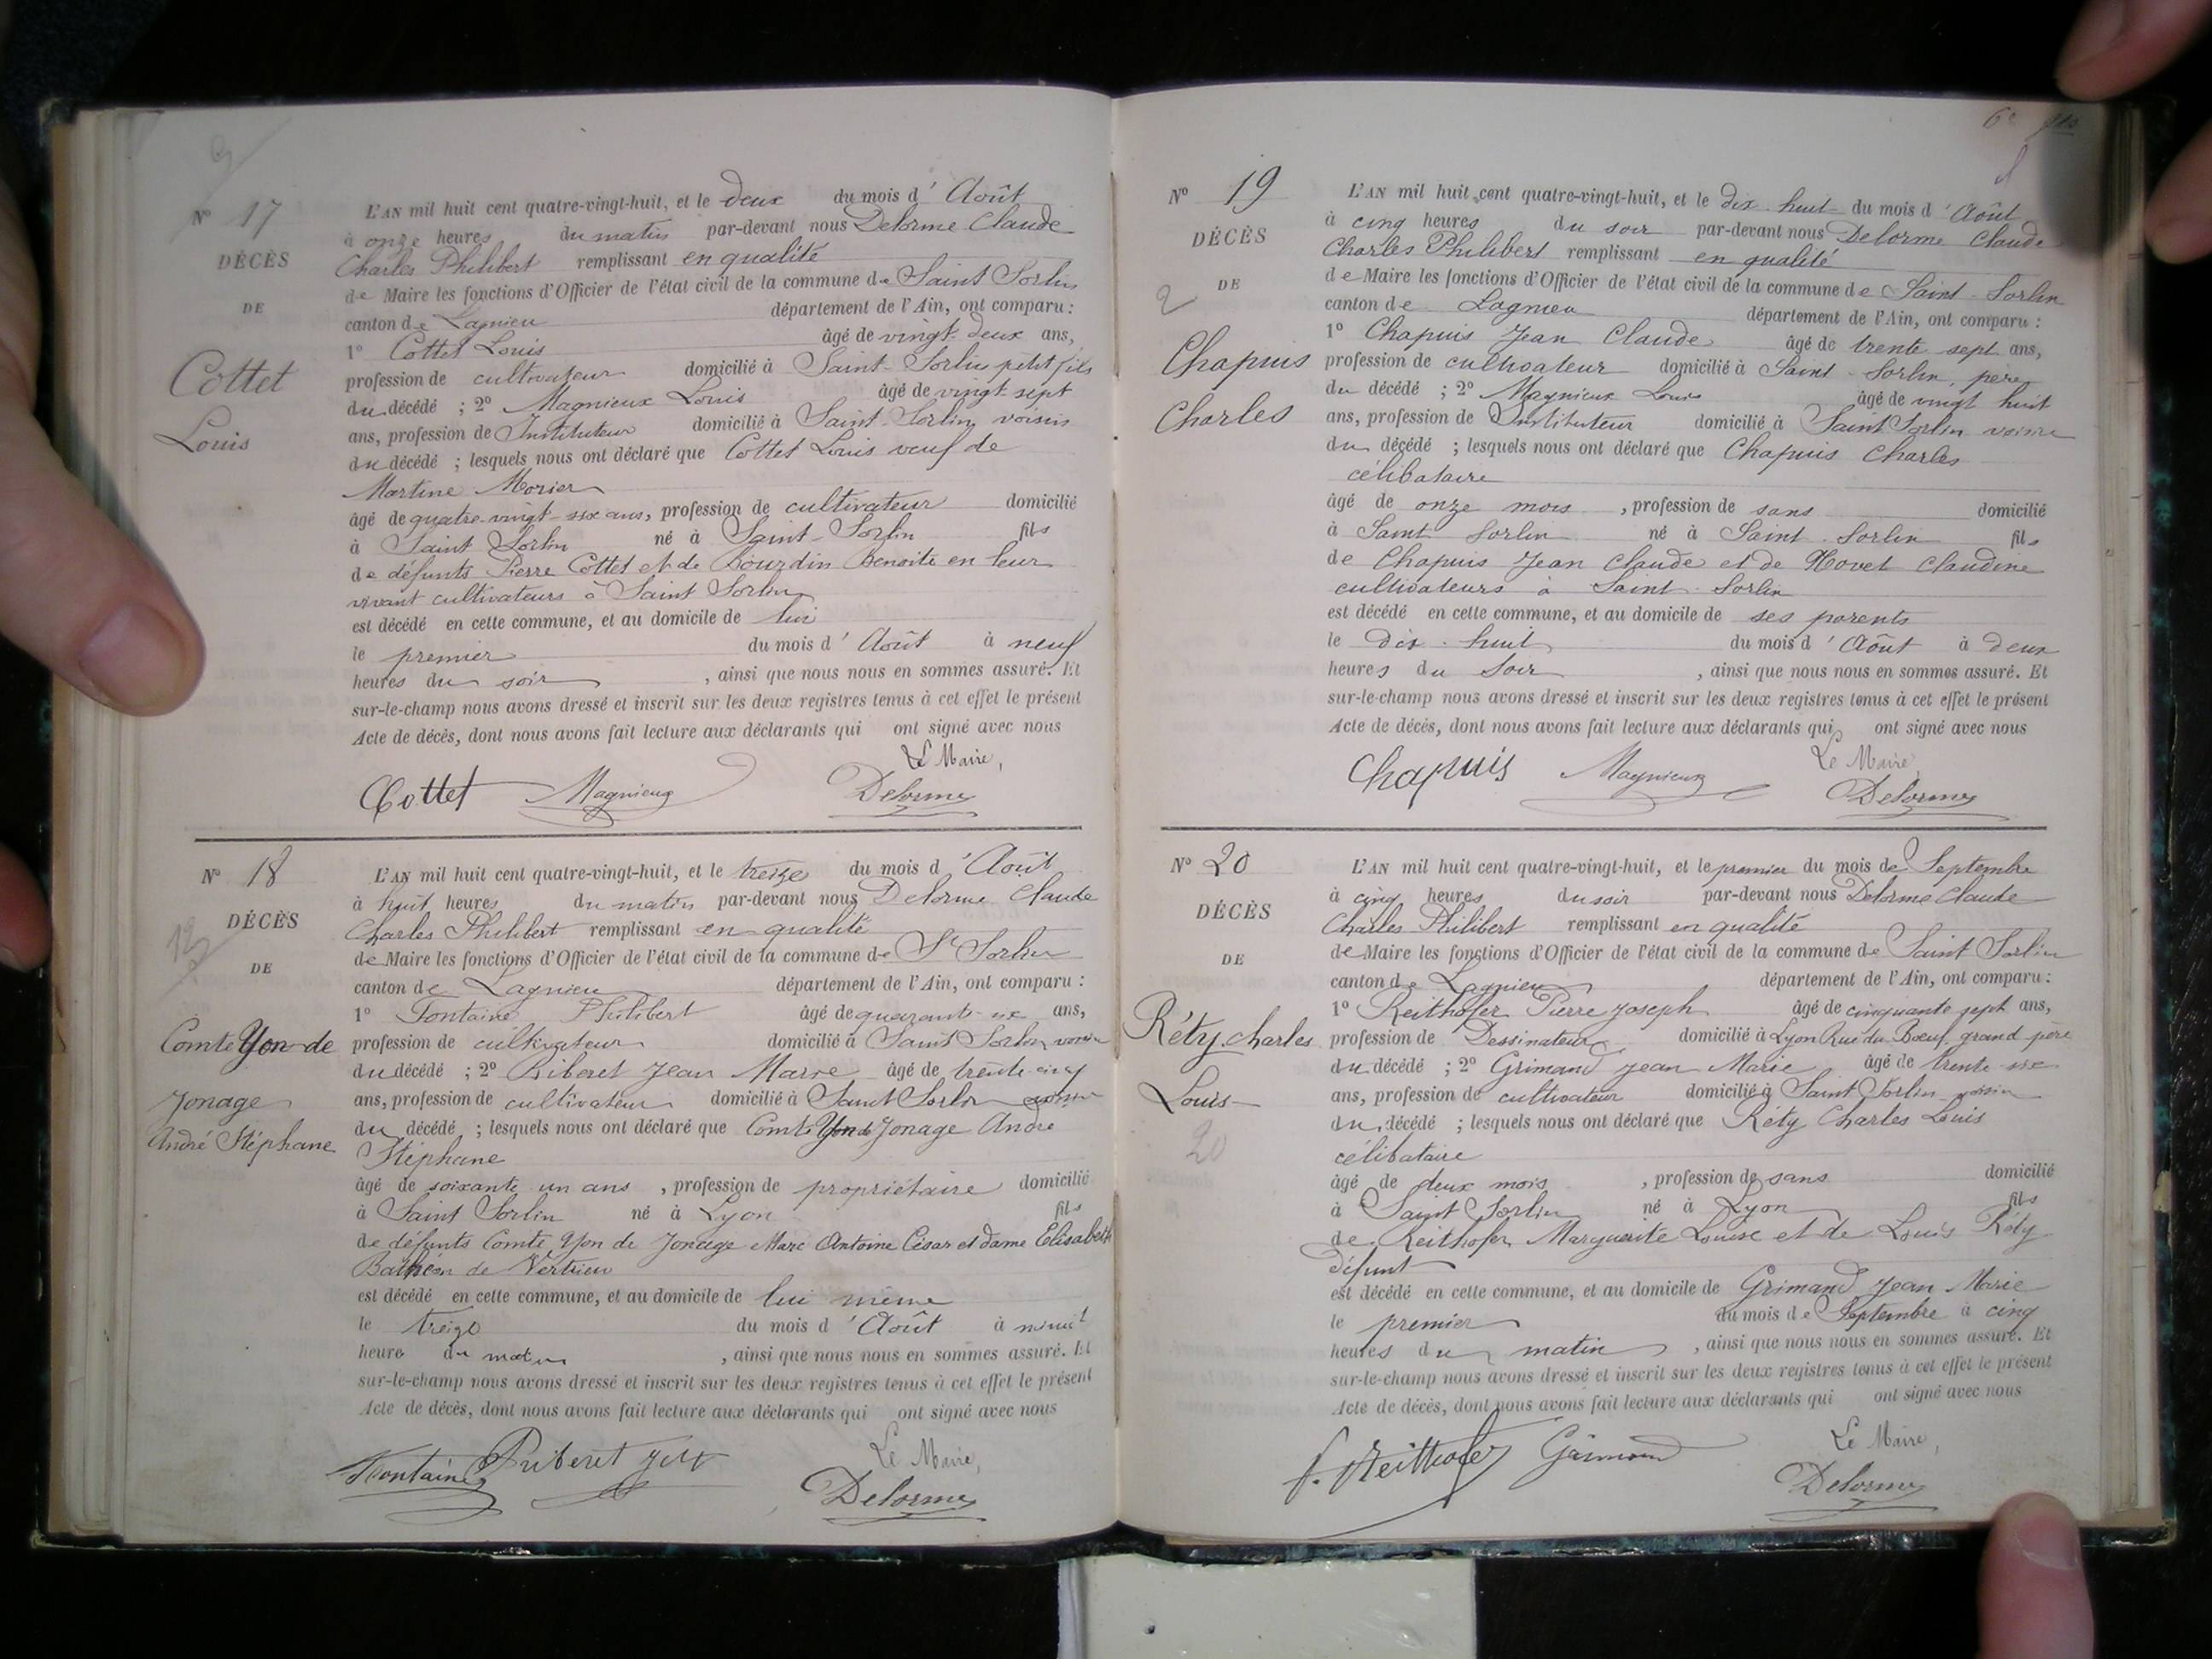 N° 17
DÉCÈS
DE
Cottet
Louis
L'AN mil huit cent quatre-vingt-huit, et le deux du mois d'Août
à onze heures du matin par-devant nous Delorme Claude
Charles Philibert remplissant en qualité
de Maire les fonctions d'Officier de l'état civil de la commune de Saint Sorlin
canton de Lagnieu département de l'Ain, ont comparu :
1° Cottet Louis âgé de vingt-deux ans,
profession de cultivateur domicilié à Saint-Sorlin petit fils
du décédé ; 2° Magnieux Louis âgé de vingt-sept
ans, profession de Instituteur domicilié à Saint-Sorlin, voisin
du décédé ; lesquels nous ont déclaré que Cottet Louis veuf de
Martine Morier
âgé de quatre-vingt-six ans, profession de cultivateur domicilié
à Saint Sorlin né à Saint-Sorlin fils
de défunts Pierre Cottet et de Bourdin Benoite en leur
vivant cultivateurs à Saint Sorlin
est décédé en cette commune, et au domicile de lui
le premier du mois d'Août à neuf
heures du soir , ainsi que nous nous en sommes assuré. Et
sur-le-champ nous avons dressé et inscrit sur les deux registres tenus à cet effet le présent
Acte de décès, dont nous avons fait lecture aux déclarants qui ont signé avec nous
Le Maire,
Cottet Magnieux Delorme
N° 18
DÉCÈS
13
DE
Comte Yon de
Jonage
André Stéphane
L'AN mil huit cent quatre-vingt-huit, et le treize du mois d'Août
à huit heures du matin par-devant nous Delorme Claude
Charles Philibert remplissant en qualité
de Maire les fonctions d'Officier de l'état civil de la commune de St Sorlin
canton de Lagnieu département de l'Ain, ont comparu :
1° Fontaine Philibert âgé de quarante-six ans,
profession de cultivateur domicilié à Saint Sorlin, voisin
du décédé ; 2° Biberet Jean Marie âgé de trente-cinq
ans, profession de cultivateur domicilié à Saint Sorlin voisin
du décédé ; lesquels nous ont déclaré que Comte Yon de Jonage André
Stéphane
âgé de soixante un ans , profession de propriétaire domicilié
à Saint Sorlin né à Lyon fils
de défunts Comte Yon de Jonage Marc Antoine César et dame Elisabeth
de Vertrieu
est décédé en cette commune, et au domicile de lui même
le treize du mois d'Août à minuit
heure du matin , ainsi que nous nous en sommes assuré. Et
sur-le-champ nous avons dressé et inscrit sur les deux registres tenus à cet effet le présent
Acte de décès, dont nous avons fait lecture aux déclarants qui ont signé avec nous
Le Maire,
Fontaine Delorme
N° 19
DÉCÈS
2
DE
Chapuis
Charles
L'AN mil huit cent quatre-vingt-huit, et le dix-huit du mois d'Août
à cinq heures du soir par-devant nous Delorme Claude
Charles Philibert remplissant en qualité
de Maire les fonctions d'Officier de l'état civil de la commune de Saint-Sorlin
canton de Lagnieu département de l'Ain, ont comparu :
1° Chapuis Jean Claude âgé de trente sept ans,
profession de cultivateur domicilié à Saint-Sorlin, père
du décédé ; 2° Magnieux Louis âgé de vingt huit
ans, profession de Instituteur domicilié à Saint Sorlin voisin
du décédé ; lesquels nous ont déclaré que Chapuis Charles
célibataire
âgé de onze mois , profession de sans domicilié
à Saint Sorlin né à Saint-Sorlin fils
de Chapuis Jean Claude et de Hovet Claudine
cultivateurs à Saint-Sorlin
est décédé en cette commune, et au domicile de ses parents
le dix-huit du mois d'Août à deux
heures du soir , ainsi que nous nous en sommes assuré. Et
sur-le-champ nous avons dressé et inscrit sur les deux registres tenus à cet effet le présent
Acte de décès, dont nous avons fait lecture aux déclarants qui ont signé avec nous
Le Maire
Chapuis Magnieux Delorme
N° 20
DÉCÈS
DE
Réty Charles
Louis
20
L'AN mil huit cent quatre-vingt-huit, et le premier du mois de Septembre
à cinq heures du soir par-devant nous Delorme Claude
Charles Philibert remplissant en qualité
de Maire les fonctions d'Officier de l'état civil de la commune de Saint Sorlin
canton de Lagnieu département de l'Ain, ont comparu :
1° Reithofer Pierre Joseph âgé de cinquante sept ans,
profession de Dessinateur domicilié à Lyon Rue du Bœuf, grand père
du décédé ; 2° Grimand Jean Marie âgé de trente-six
ans, profession de cultivateur domicilié à Saint Sorlin voisin
du décédé ; lesquels nous ont déclaré que Réty Charles Louis
célibataire
âgé de deux mois , profession de sans domicilié
à Saint Sorlin né à Lyon fils
de Reithofer Marguerite Louise et de Louis Réty
défunt
est décédé en cette commune, et au domicile de Grimand Jean Marie
le premier du mois de Septembre à cinq
heures du matin , ainsi que nous nous en sommes assuré. Et
sur-le-champ nous avons dressé et inscrit sur les deux registres tenus à cet effet le présent
Acte de décès, dont nous avons fait lecture aux déclarants qui ont signé avec nous
Le Maire,
Reithofer Grimand Delorme